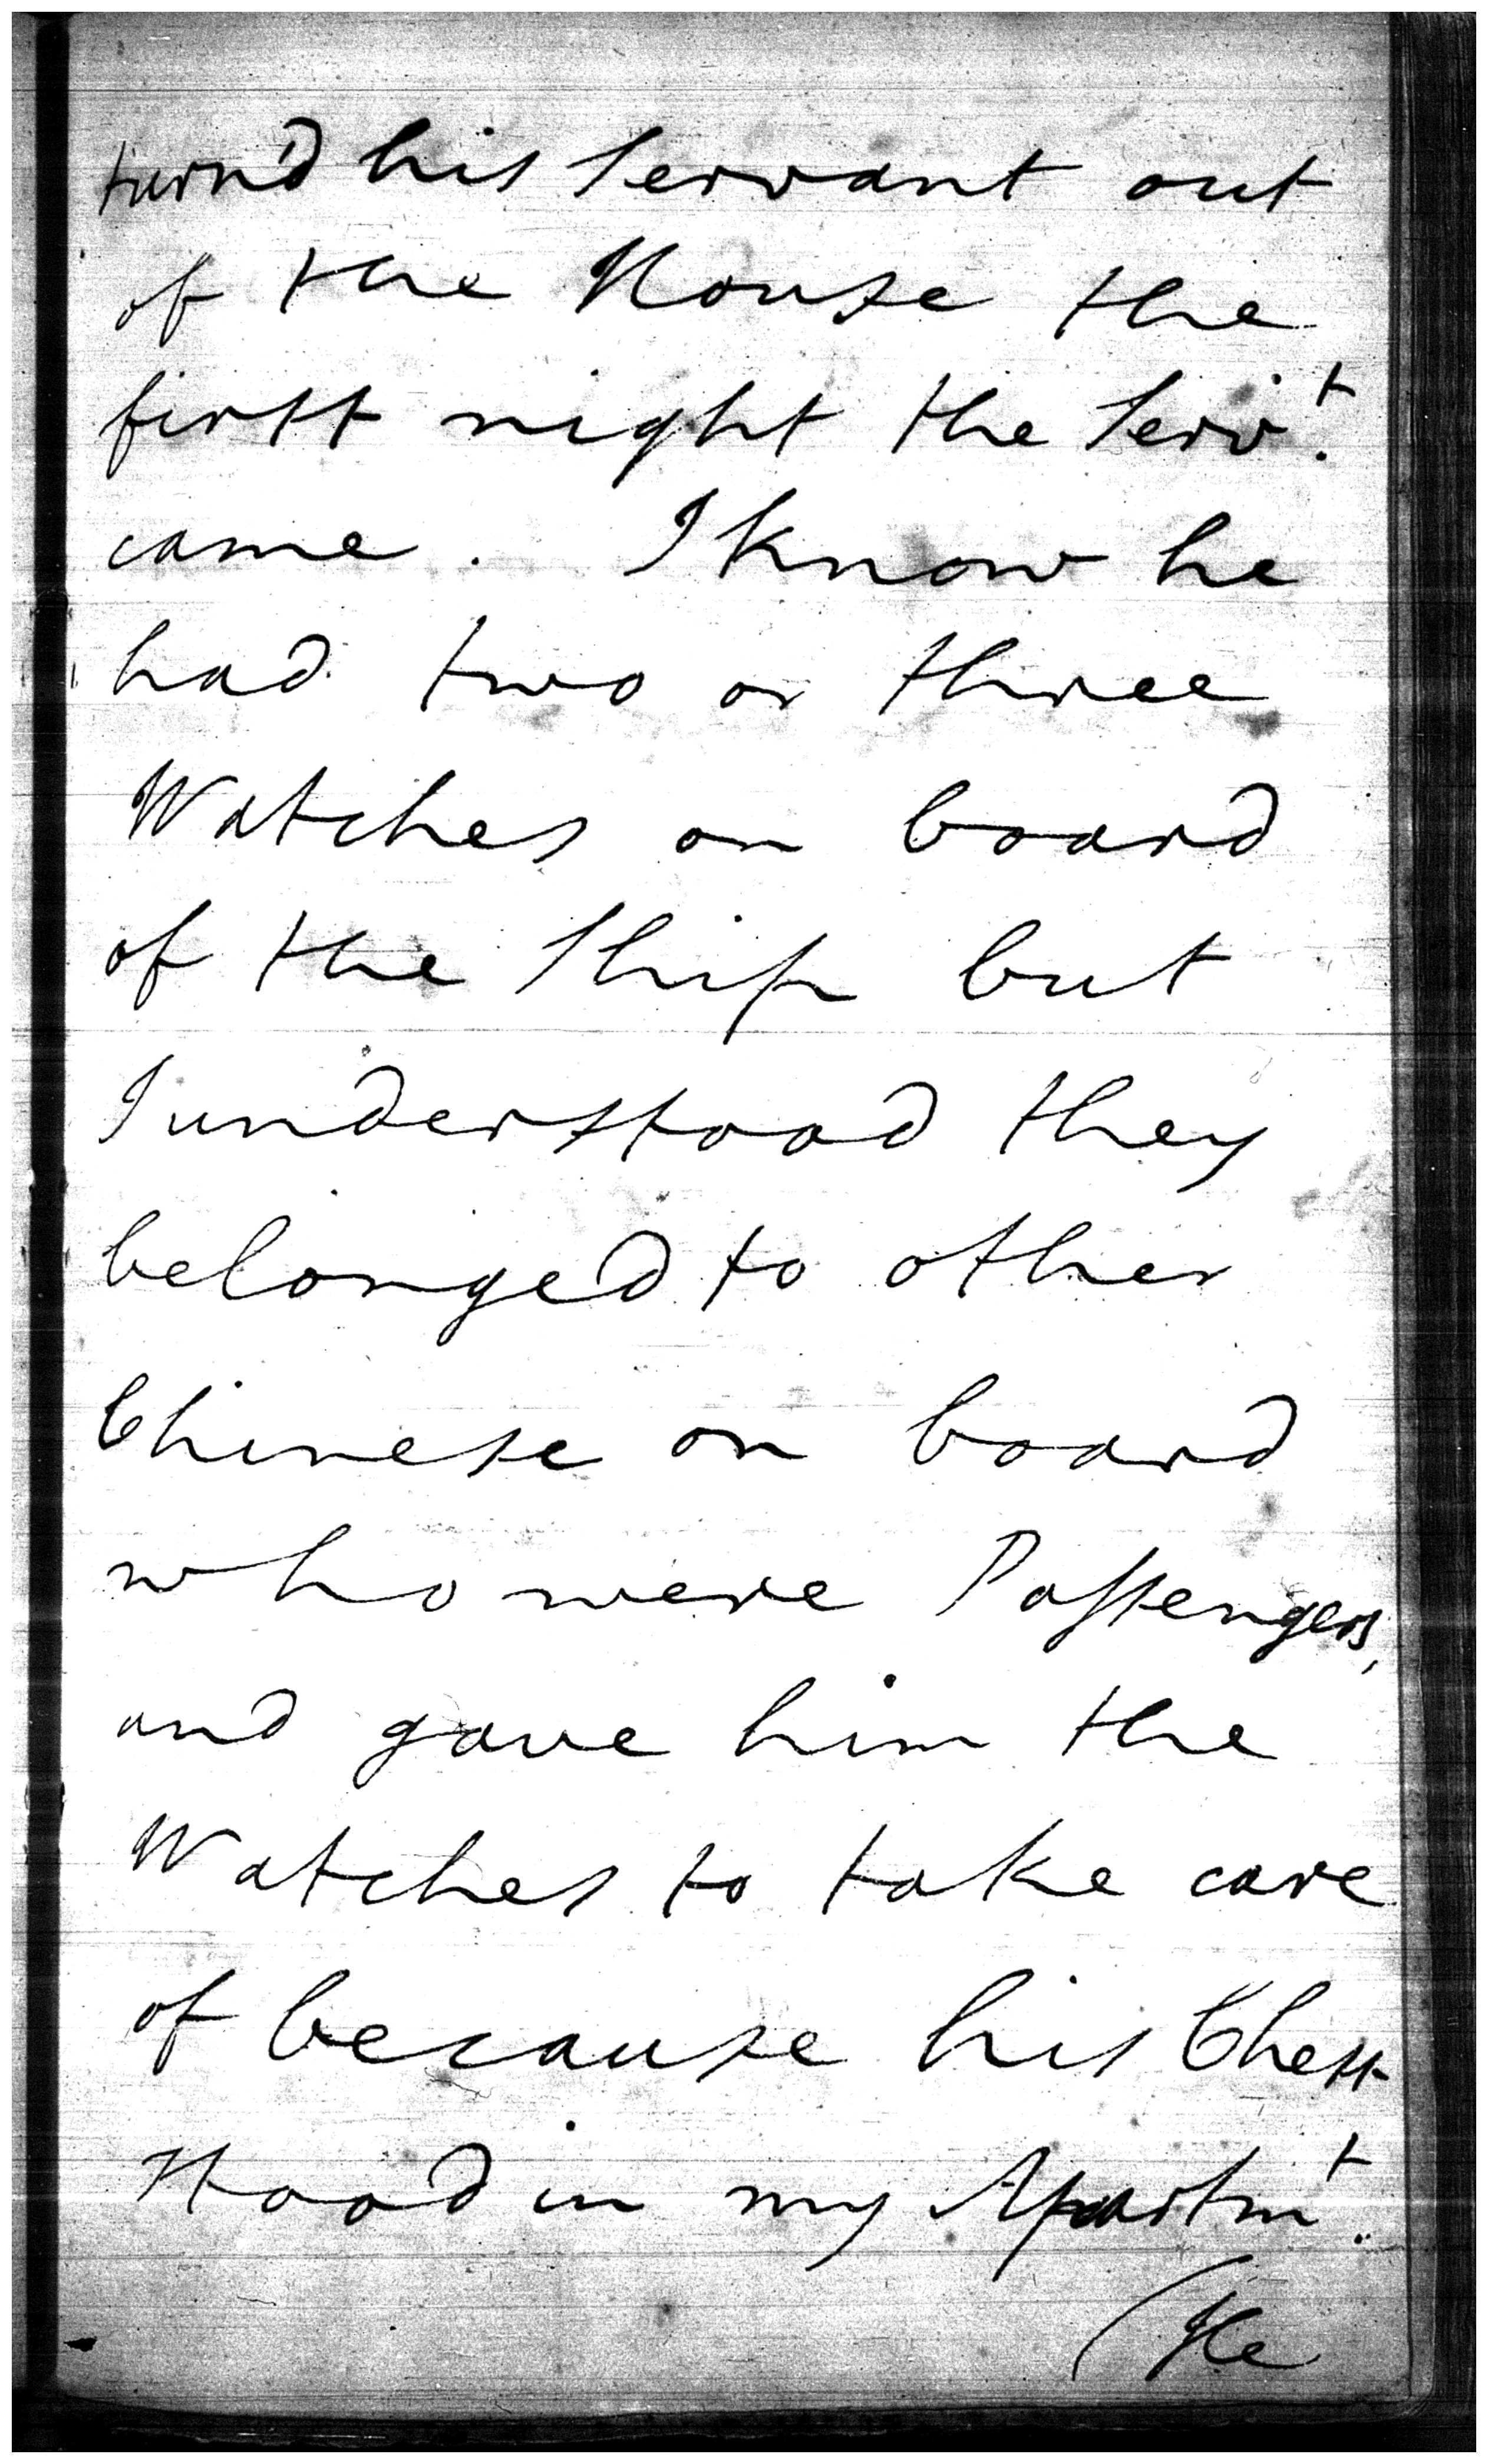 turn'd his Servant out
of the House the
first night the Serv.t
came. I know he
had two or three
Watches on board
of the Ship but
I understood they
belonged to other
Chinese on board
who were Passengers,
and gave him the
Watches to take care
of because his Chest
stood in my Apartm.t
(He